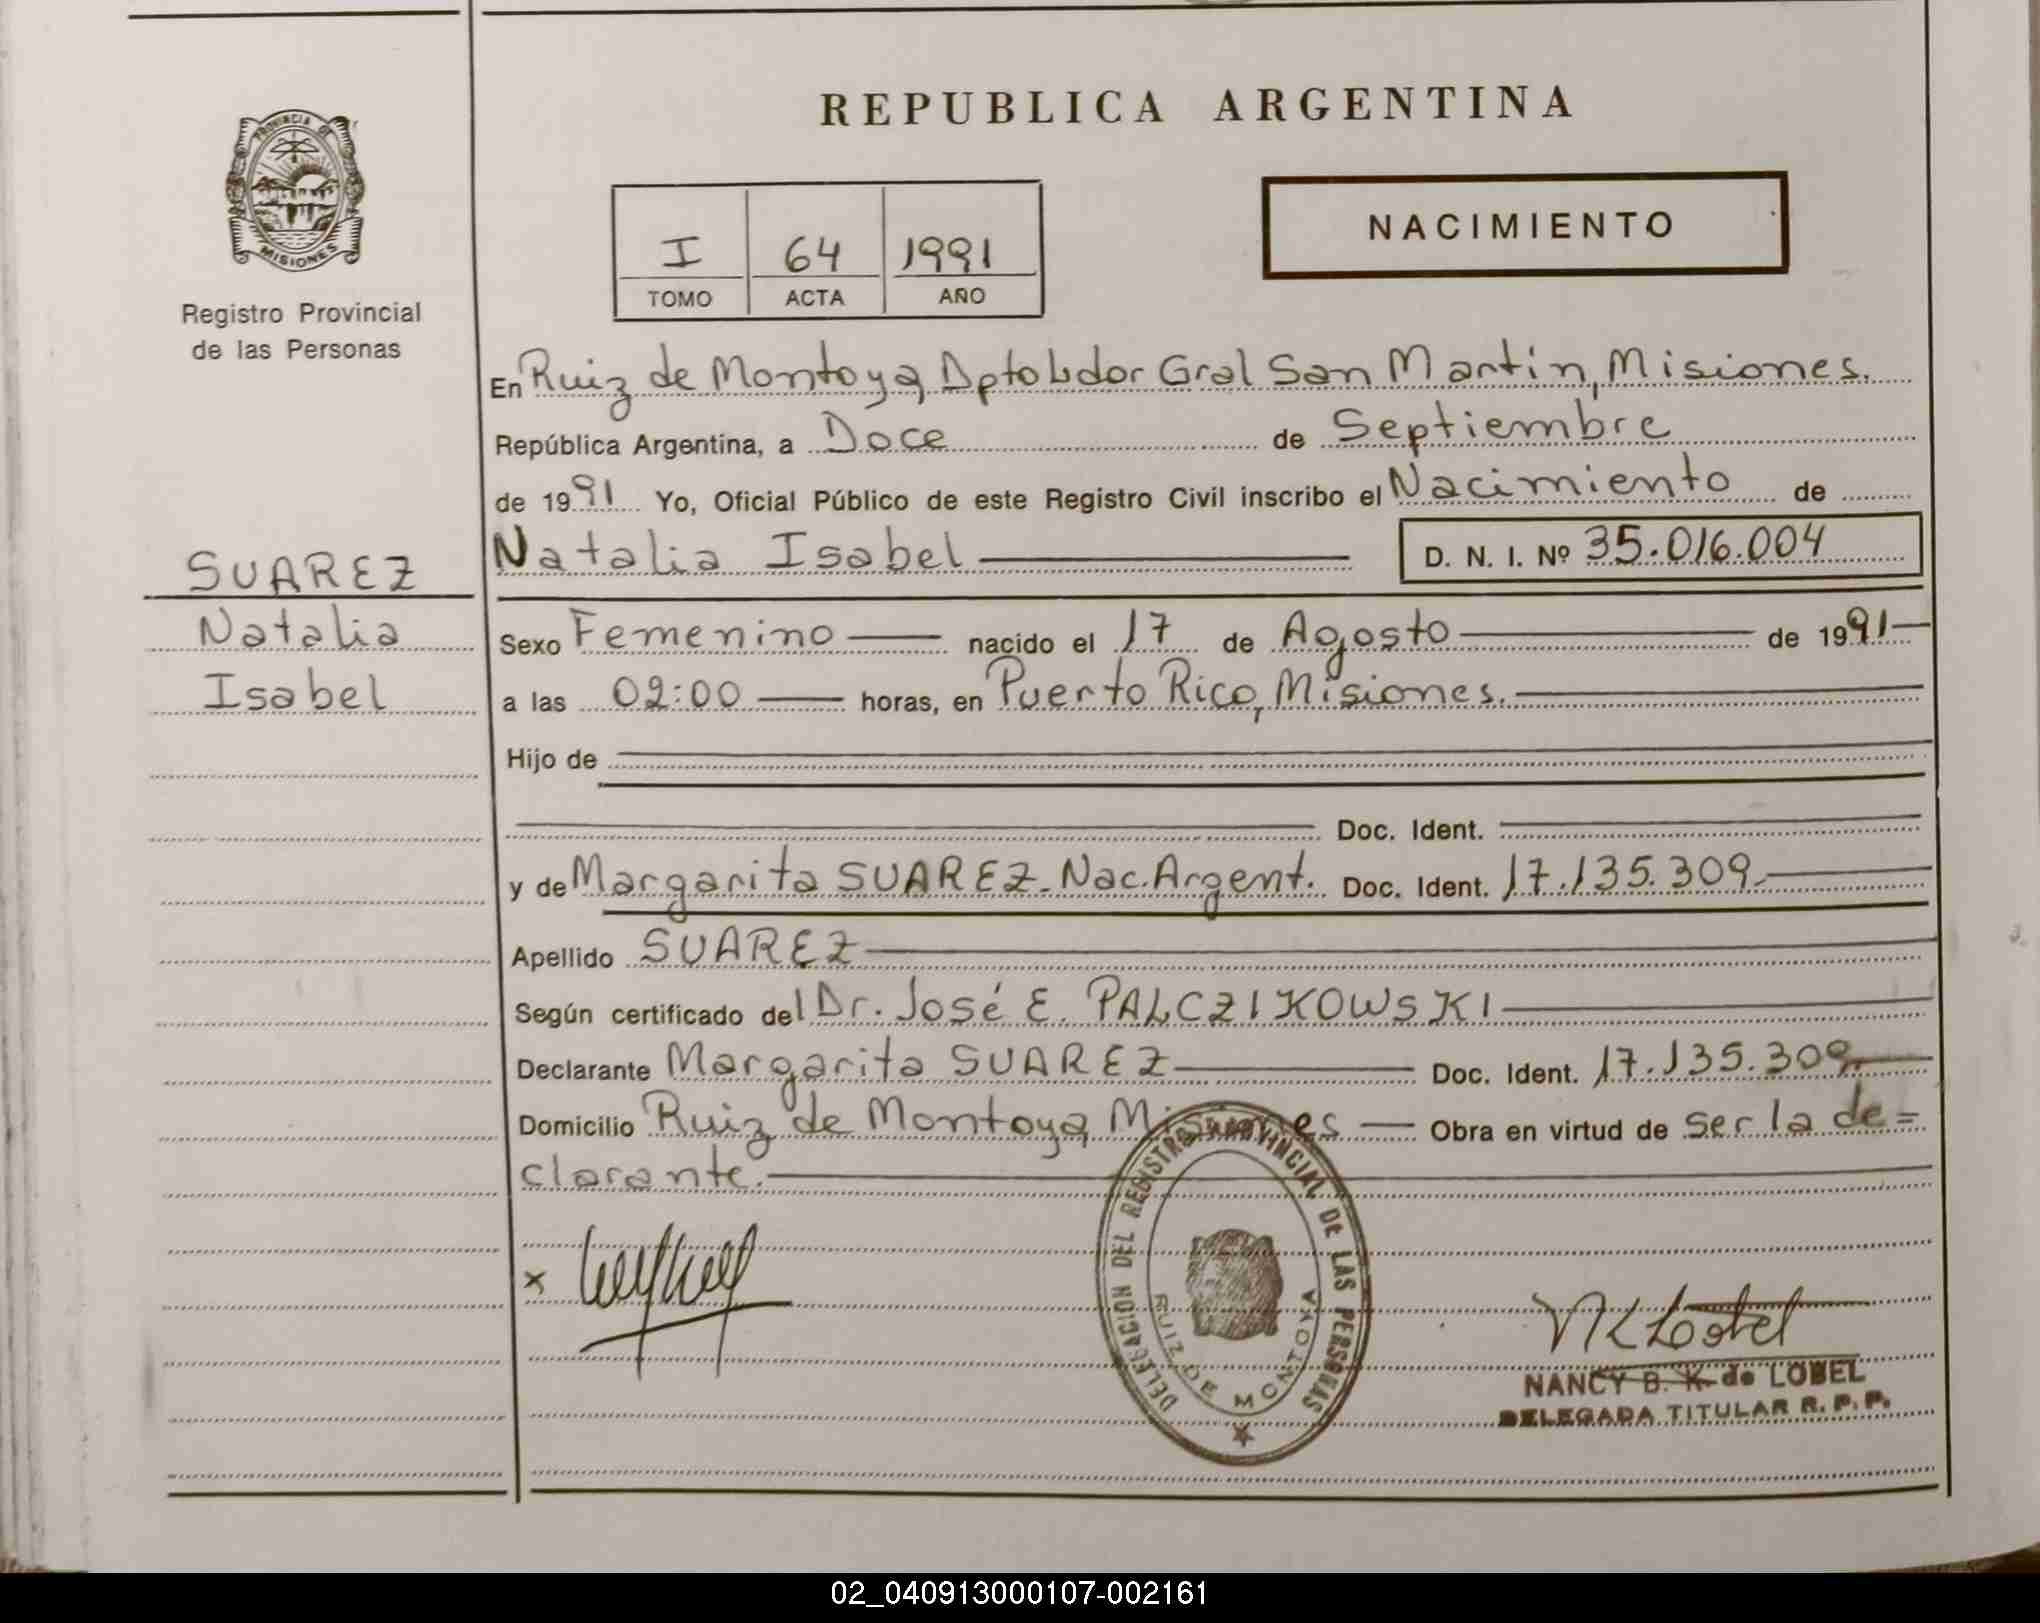 PROVINCIA DE
MISIONES
Registro Provincial
de las Personas
SUAREZ
Natalia
Isabel
REPUBLICA ARGENTINA
I 64 1991
TOMO ACTA AÑO
NACIMIENTO
En Ruiz de Montoya, Dpto Ldor Gral San Martin, Misiones.
República Argentina, a Doce de Septiembre
de 1991 Yo, Oficial Público de este Registro Civil inscribo el Nacimiento de
Natalia Isabel D. N. I. Nº 35.016.004
Sexo Femenino nacido el 17 de Agosto de 1991
a las 02:00 horas, en Puerto Rico, Misiones.
Hijo de
Doc. Ident.
y de Margarita SUAREZ. Nac. Argent. Doc. Ident. 17.135.309
Apellido SUAREZ
Según certificado del Dr. José E. PALCZIKOWSKI
Declarante Margarita SUAREZ Doc. Ident. 17.135.309
Domicilio Ruiz de Montoya, Misiones Obra en virtud de ser la de=
clarante.
x
DELEGACION DEL REGISTRO PROVINCIAL DE LAS PERSONAS
RUIZ DE MONTOYA
NANCY B. K. de LOBEL
DELEGADA TITULAR R. P. P.
02_040913000107-002161